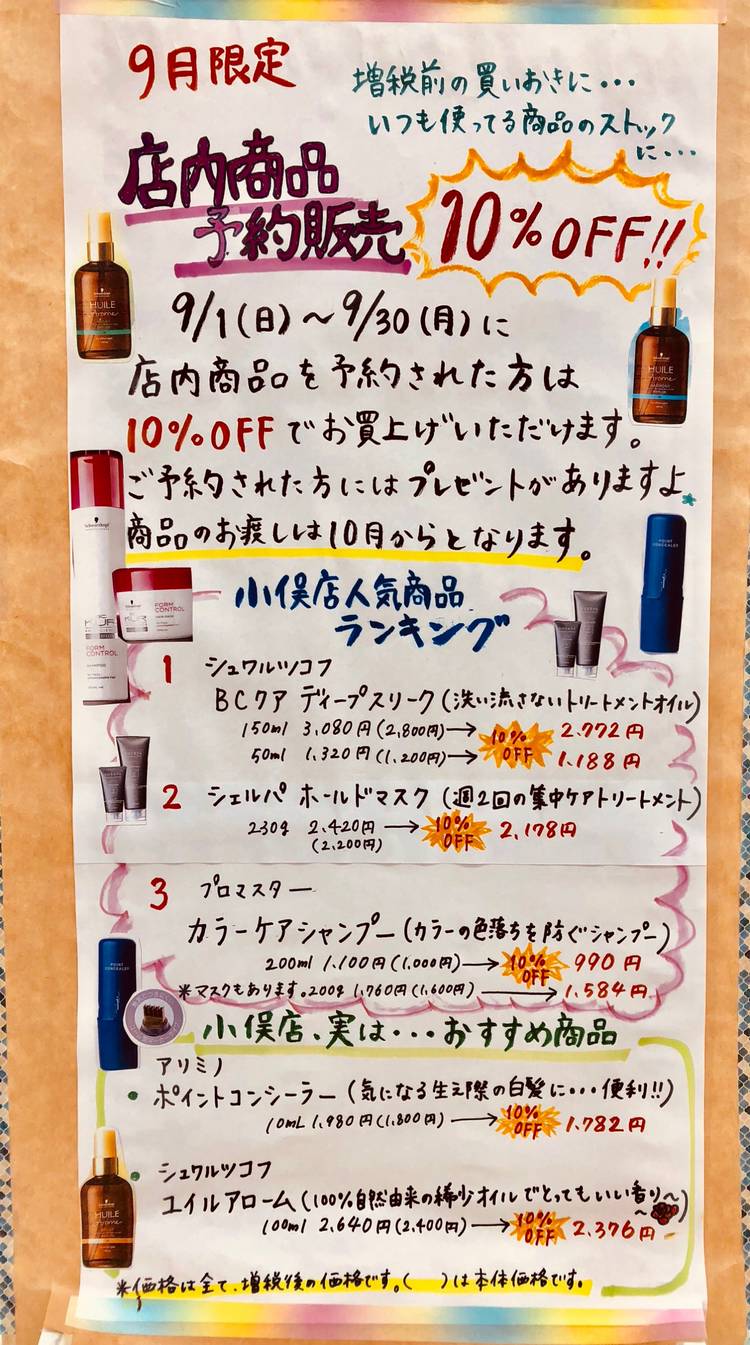 9月限定
増税前の買いおきに・・・
いつも使ってる商品のストック
に・・・
店内商品
予約販売
10%OFF!!
9/1(日)～9/30(月)に
店内商品を予約された方は
10%OFFでお買上げいただけます。
ご予約された方にはプレゼントがありますよ
商品のお渡しは10月からとなります。
HUILE
Arome
HUILE
Arome
POINT
CONCEALER
FORM
CONTROL
FORM
CONTROL
小俣店人気商品
ランキング
1 シュワルツコフ
BCクア ディープスリーク(洗い流さないトリートメントオイル)
150ml 3,080円(2,800円)→ 10%OFF 2.772円
50ml 1,320円(1,200円)→ 10%OFF 1.188円
2 シェルパ ホールドマスク(週2回の集中ケアトリートメント)
230g 2,420円 → 10%OFF 2,178円
(2,200円)
3 プロマスター
カラーケアシャンプー(カラーの色落ちを防ぐシャンプー)
200ml 1,100円(1,000円)→ 10%OFF 990円
※マスクもあります。200g 1,760円(1,600円)→ 1,584円
小俣店、実は・・・おすすめ商品
アリミノ
・ポイントコンシーラー(気になる生え際の白髪に・・・便利!!)
10mL 1,980円(1,800円)→ 10%OFF 1.782円
POINT
CONCEALER
・シュワルツコフ
ユイルアローム(100%自然由来の稀少オイルでとってもいい香り～～)
100ml 2,640円(2,400円)→ 10%OFF 2,376円
HUILE
Arome
※価格は全て、増税後の価格です。( )は本体価格です。